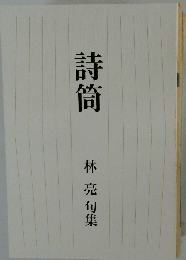 詩筒
林亮句集